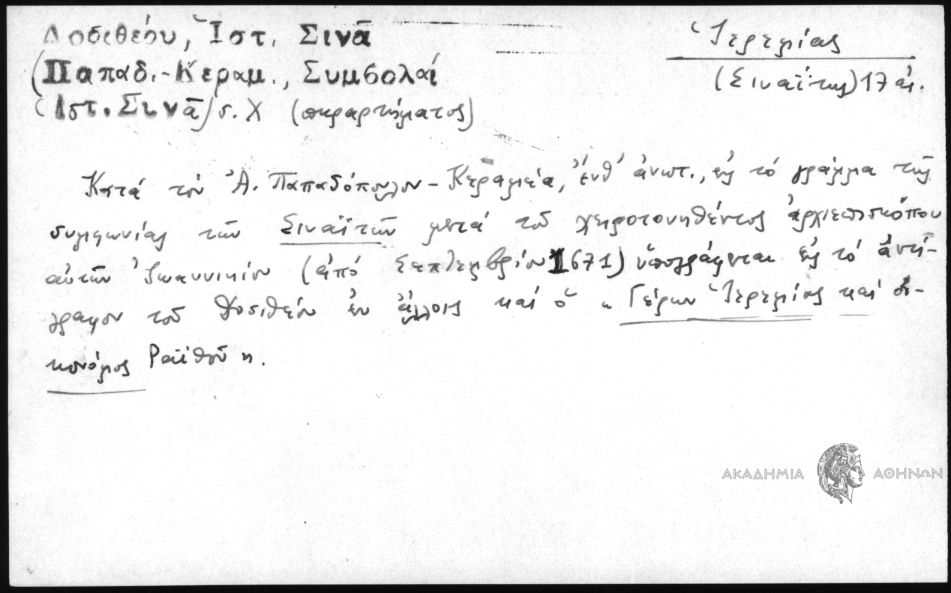 Δοσιθέου, Ἱστ. Σινᾶ
(Παπαδ.-Κεραμ., Συμβολαί
(Ἱστ. Σινᾶ) σ. Χ (παραρτήματος)
Ἱερεμίας
(Σιναΐτης) 17 αἰ.
Κατά τόν Ἀ. Παπαδόπουλον-Κεραμέα, ἔνθ' ἀνωτ., εἰς τό γράμμα τῆς
συμφωνίας τῶν Σιναϊτῶν μετά τοῦ χειροτονηθέντος ἀρχιεπισκόπου
αὐτῶν Ἰωαννικίου (ἀπό Σεπτεμβρίου 1671) ὑπογράφεται εἰς τό ἀντί-
γραφον τοῦ Δοσιθέου ἐν ἄλλοις καί ὁ « Γέρων Ἱερεμίας καί οἰ-
κονόμος Ραϊθοῦ ».
ΑΚΑΔΗΜΙΑ ΑΘΗΝΩΝ